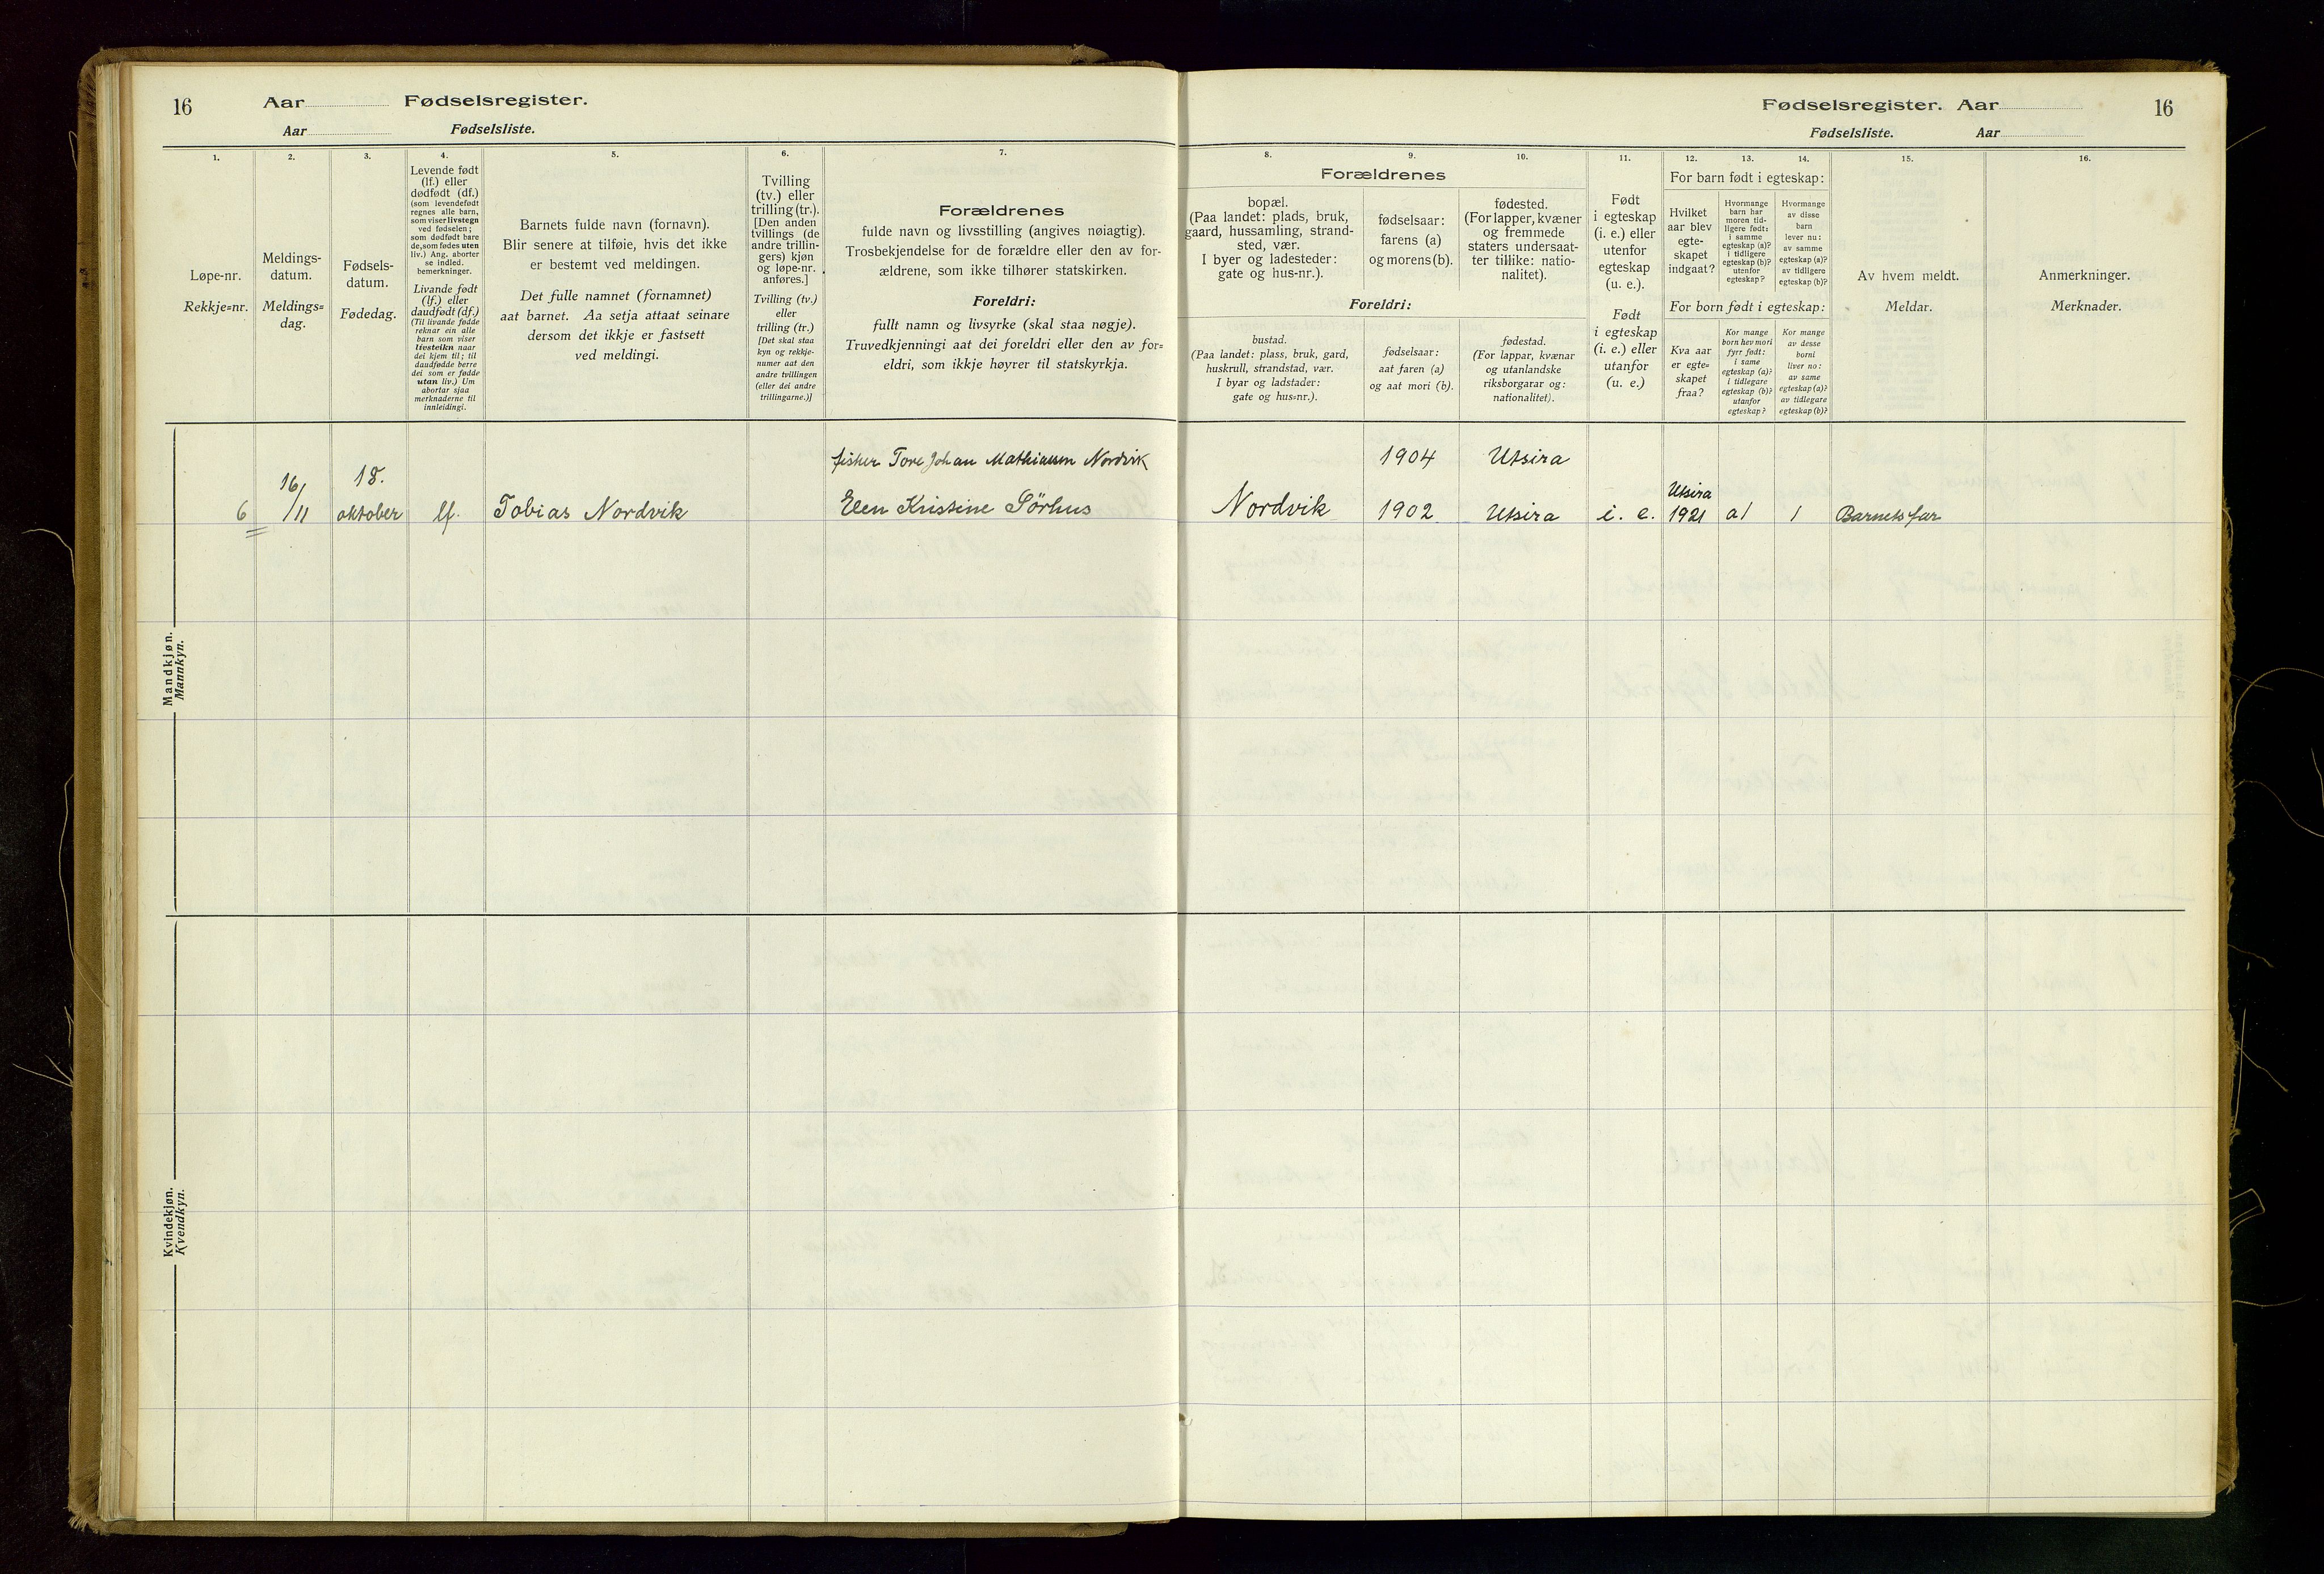 16 Aar Fødselsregister.
Aar Fødselsliste.
1.
Løpe-nr.
Rekkje=nr.
2.
Meldings-
datum.
Meldings=
dag.
3.
Fødsels-
datum.
Fødedag.
4.
Levende født
(lf.) eller
dødfødt (df.)
(som levendefødt
regnes alle barn,
som viser livstegn
ved fødselen;
som dødfødt bare
de, som fødes uten
liv.) Ang. aborter
se indled.
bemerkninger.
Livande født
(lf.) eller
daudfødt (df.)
(Til livande fødde
reknar ein alle
barn som viser
livsteikn naar
dei kjem til; til
daudfødde berre
dei som er fødde
utan liv.) Um
abortar sjaa
merknaderne til
innleidingi.
5.
Barnets fulde navn (fornavn).
Blir senere at tilføie, hvis det ikke
er bestemt ved meldingen.
Det fulle namnet (fornamnet)
aat barnet. Aa setja attaat seinare
dersom det ikkje er fastsett
ved meldingi.
6.
Tvilling
(tv.) eller
trilling (tr.).
[Den anden
tvillings (de
andre trillin-
gers) kjøn
og løpe-nr.
anføres.]
Tvilling (tv.)
eller
trilling (tr.)
[Det skal staa
kyn og rekkje-
numer aat den
andre tvillingen
(eller dei andre
trillingarne.)]
7.
Forældrenes
fulde navn og livsstilling (angives nøiagtig).
Trosbekjendelse for de forældre eller den av for-
ældrene, som ikke tilhører statskirken.
Foreldri:
fullt namn og livsyrke (skal staa nøgje).
Truvedkjenningi aat dei foreldri eller den av for=
eldri, som ikkje høyrer til statskyrkja.
Fødselsregister. Aar 16
Fødselsliste. Aar
Forældrenes
8.
bopæl.
(Paa landet: plads, bruk,
gaard, hussamling, strand-
sted, vær.
I byer og ladesteder:
gate og hus-nr.).
9.
fødselsaar:
farens (a)
og morens (b).
10.
fødested.
(For lapper, kvæner
og fremmede
staters undersaat-
ter tillike: natio-
nalitet).
Foreldri:
bustad.
(Paa landet: plass, bruk, gard,
huskrull, strandstad, vær.
I byar og ladstader:
gate og hus=nr.).
fødselsaar:
aat faren (a)
og aat mori (b).
fødestad.
(For lappar, kvænar
og utanlandske
riksborgarar og:
nationalitet).
11.
Født
i egteskap
(i. e.) eller
utenfor
egteskap
(u. e.).
Født
i egteskap
(i. e.) eller
utanfor
egteskap
(u. e.)
12. 13. 14.
For barn født i egteskap:
Hvilket
aar blev
egte-
skapet
indgaat?
Hvormange
barn har
moren tid-
ligere født:
i samme
egteskap (a)?
i tidligere
egteskap (b)?
utenfor
egteskap?
Hvormange
av disse
barn
lever nu:
av samme
egteskap (a)?
av tidligere
egteskap (b)?
For born født i egteskap:
Kva aar
er egte=
skapet
fraa?
Kor mange
born hev mori
fyrr født:
i same
egteskap (a)?
i tidlegare
egteskap (b)?
utanfor
egteskap?
Kor mange
av desse
borni
liver no:
av same
egteskap (a)?
av tidlegare
egteskap (b)?
15.
Av hvem meldt.
Meldar.
16.
Anmerkninger.
Merknader.
Mandkjøn.
Mannkyn.
fisker Tore Johan Mathiassen Nordvik 1904 Utsira
6 16/11 18. oktober lf. Tobias Nordvik Elen Kristine Sørhus Nordvik 1902 Utsira i. e. Utsira 1921 a1 1 Barnets far
Kvindekjøn.
Kvendkyn.